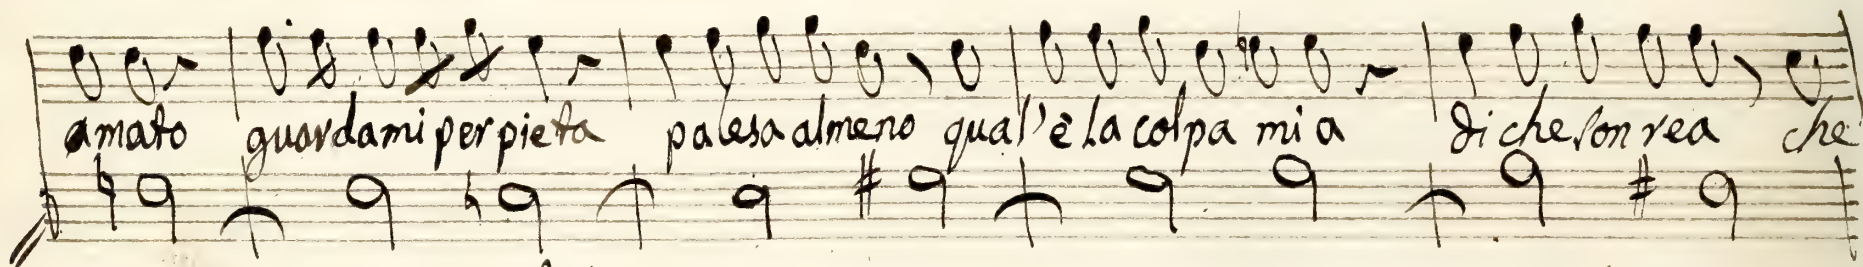 amato guardami per pieta palesa almeno qual'è la colpa mia di che son rea che